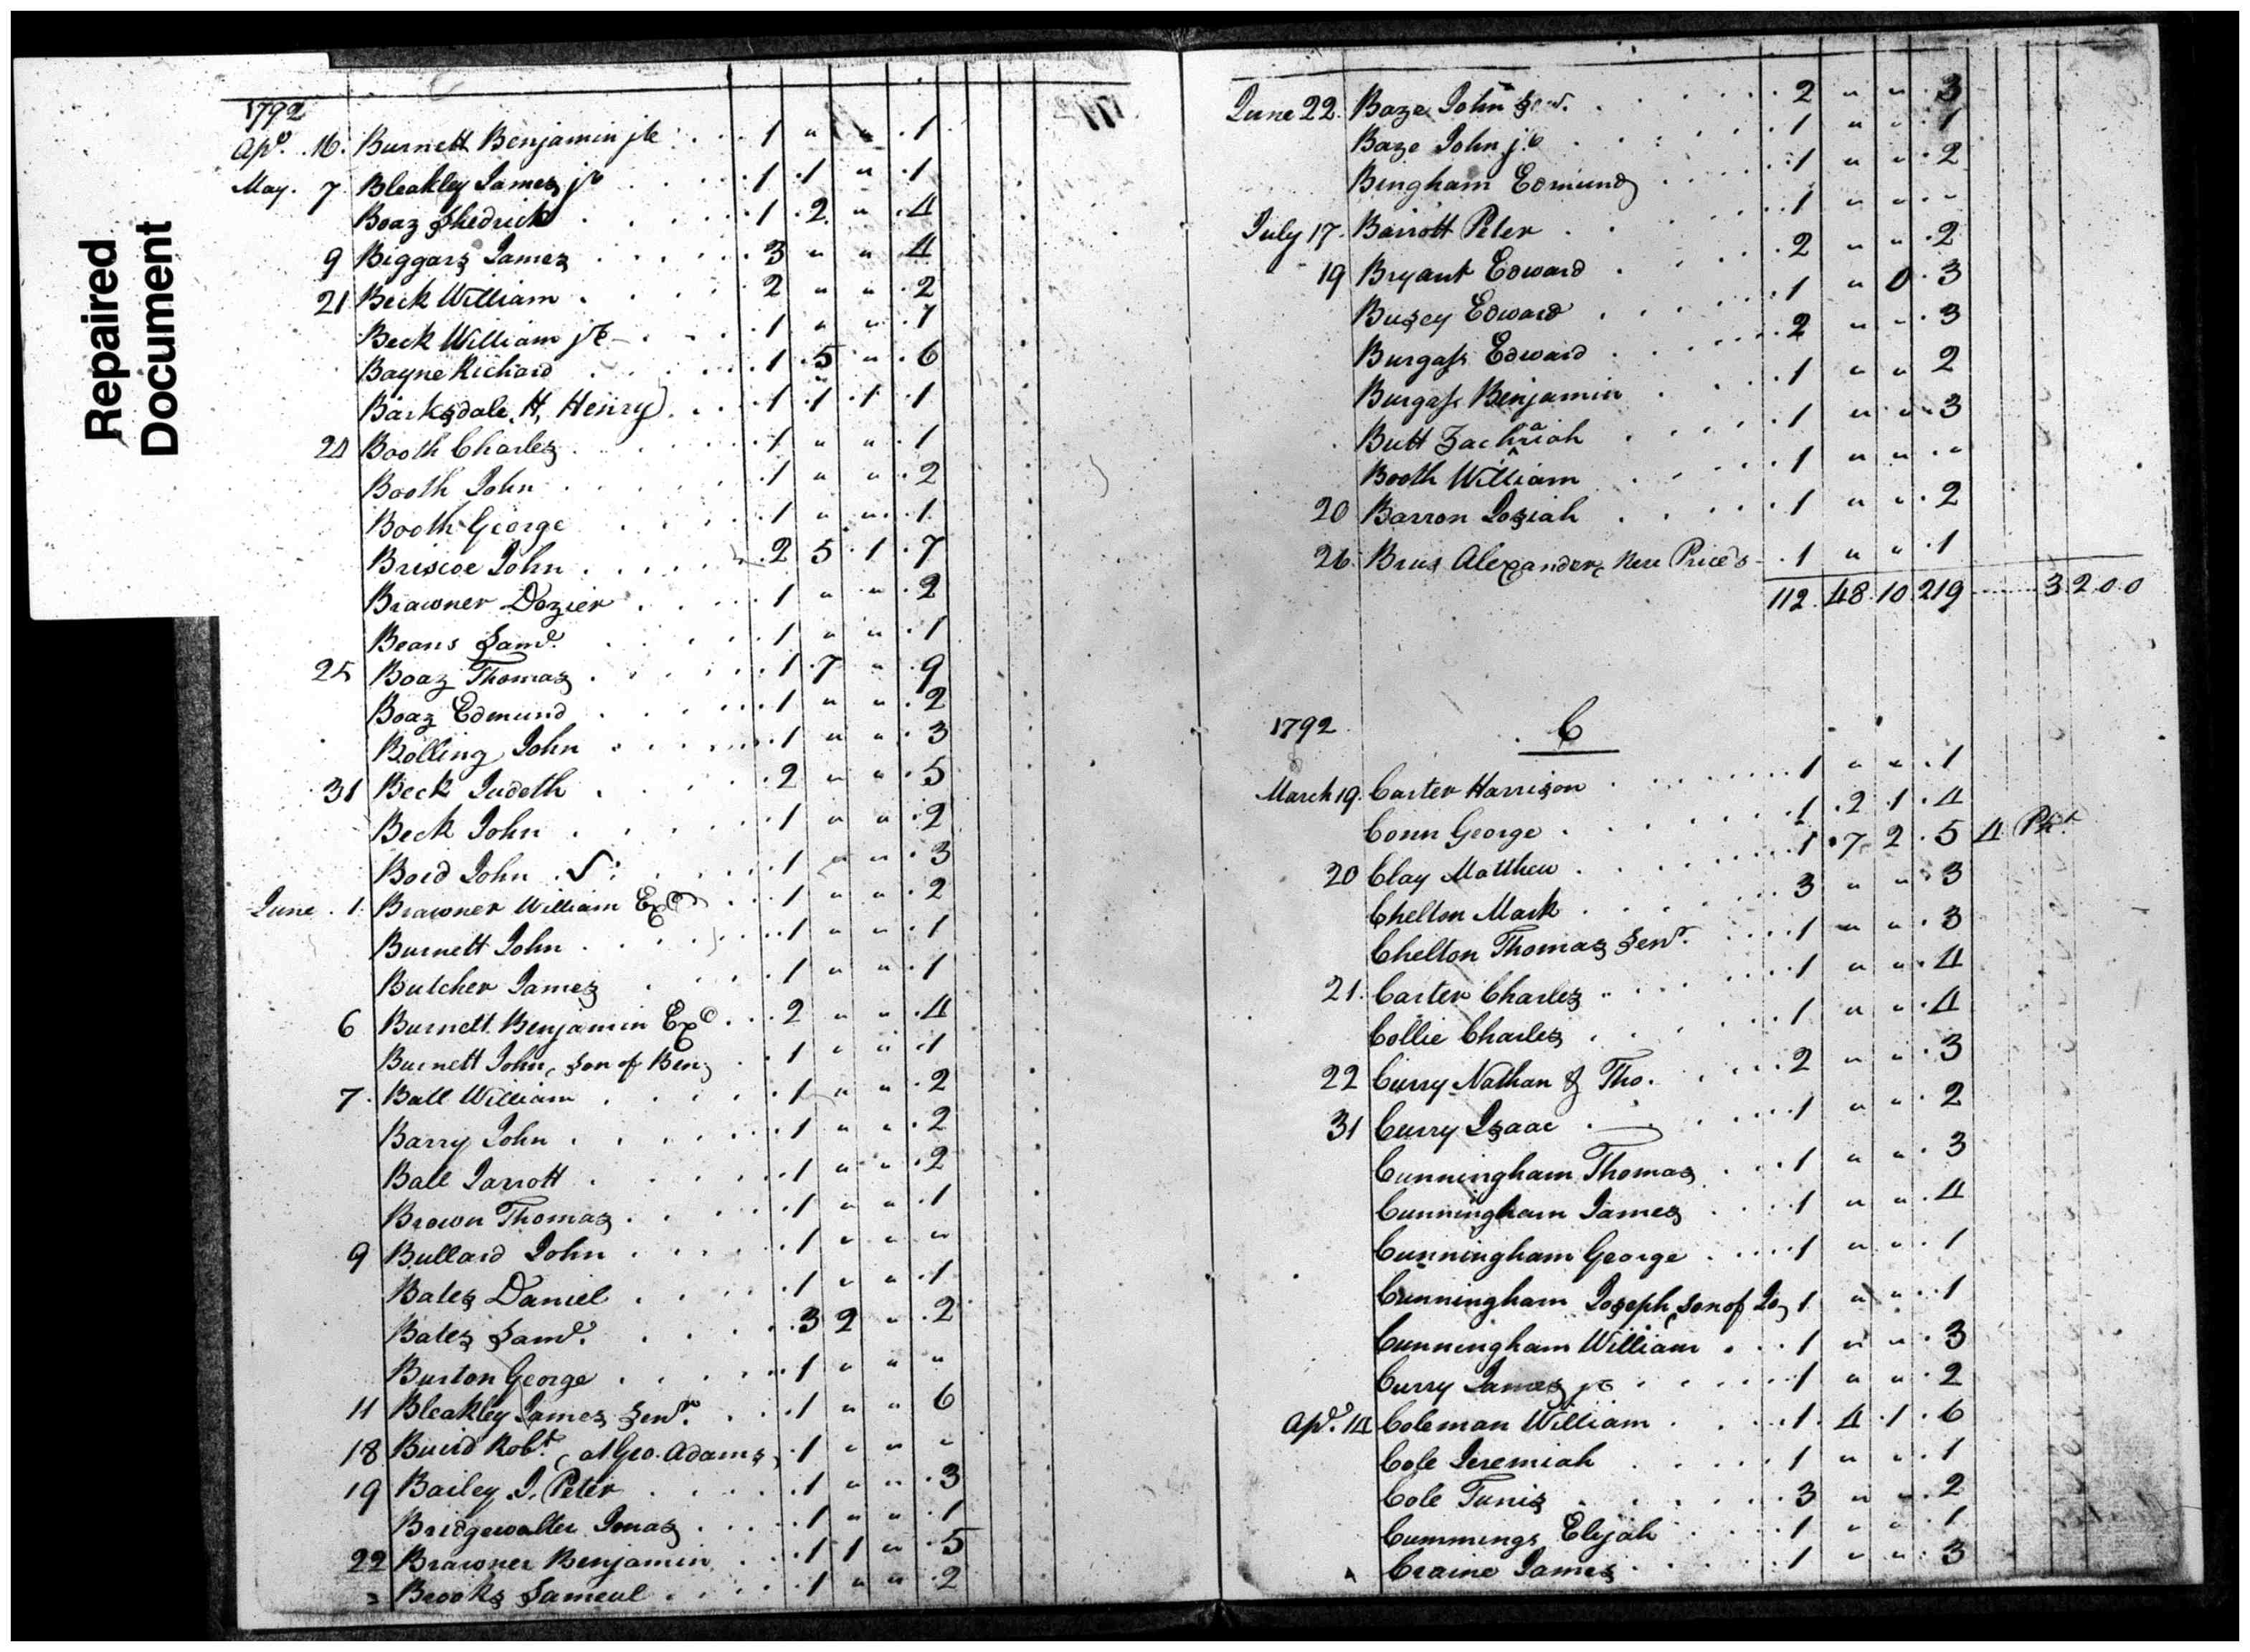 Repaired
Document
1792
Apl. 16. Burnett Benjamin jr 1 " " 1
May. 7 Bleakley James jr 1 1 " 1
Boaz Shedrick 1 2 " 4
9 Beggars James 3 " " 4
21 Beck William 2 " " 2
Beck William jr 1 " " 1
Bayne Richard 1 5 " 6
Barksdale H. Henry 1 1 1 1
24 Booth Charles 1 " " 1
Booth John 1 " " 2
Booth George 1 " " 1
Briscoe John 2 5 1 7
Brawner Dozier 1 " " 2
Beans Saml. 1 " " 1
25 Boaz Thomas 1 7 " 9
Boaz Edmund 1 " " 2
Bolling John 1 " " 3
31 Beck Judeth 2 " " 5
Beck John 1 " " 2
Boid John S 1 " " 3
June 1. Brawner William 1 " " 2
Burnett John 1 " " 1
Butcher James 1 " " 1
6 Burnett Benjamin Exc. 2 " " 4
Burnett John, Son of Ben 1 " " 1
7 Ball William 1 " " 2
Barry John 1 " " 2
Ball Jarrott 1 " " 2
Brown Thomas 1 " " 1
9 Bullard John 1 " " "
Bates Daniel 1 " " 1
Bates Saml. 3 2 " 2
Burton George 1 " " "
11 Bleakley James Senr. 1 " " 6
18 Robt. at Geo. Adams 1 " " "
19 Bailey J. Peter 1 " " 3
Bridgewatter Jonas 1 " " 1
22 Brawner Benjamin 1 1 " 5
Brooks Sameul 1 " " 2
June 22. Baze John Senr. 2 " " 3
Baze John jr 1 " " 1
Bingham Edmund 1 " " 2
July 17. Barrott Peter 1 " " "
19 Bryant Edward 2 " " 2
Busey Edward 1 " 0 3
Burgass Edward 2 " " 3
Burgass Benjamin 1 " " 2
Butt Zachariah 1 " " 3
Booth William 1 " " "
20 Barron Josiah 1 " " 2
26 Brus Alexander, Price's 1 " " 1
112 48 10 219 3 2 0 0
1792 C
March 19. Carter Harrison 1 " " 1
Conn George 1 2 1 4
20 Clay Matthew 1 7 2 5 4
Chelton Mark 3 " " 3
Chelton Thomas Senr. 1 " " 3
21. Carter Charles 1 " " 4
Collie Charles 1 " " 4
22 Curry Nathan & Tho. 2 " " 3
31 Curry Isaac 1 " " 2
Cunningham Thomas 1 " " 3
Cunningham James 1 " " 4
Cunningham George 1 " " 1
Cunningham Joseph son of Jo 1 " " 1
Cunningham William 1 " " 3
Curry James jr 1 " " 2
Apl. 14 Coleman William 1 4 1 6
Cole Jeremiah 1 " " 1
Cole Tunis 3 " " 2
Cummings Elijah 1 " " 1
Craine James 1 " " 3